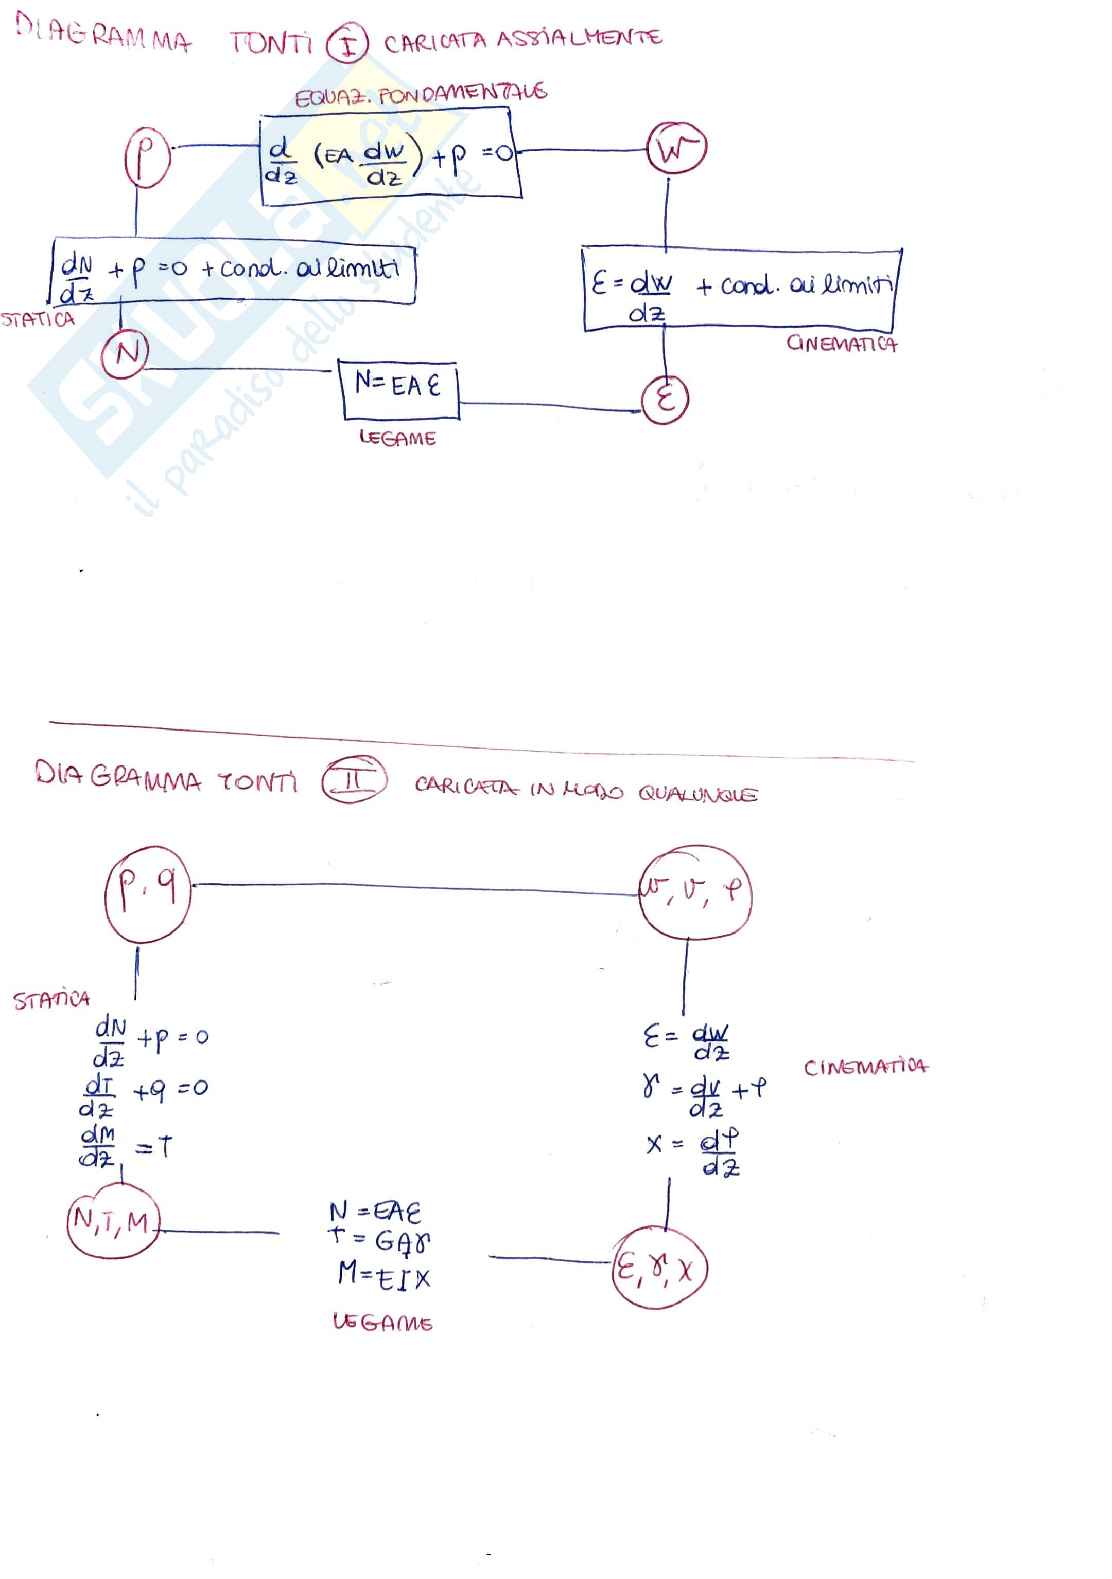 DIAGRAMMA TONTI I CARICATA ASSIALMENTE
EQUAZ. FONDAMENTALE
p
d/dz (EA dw/dz) + p = 0
w
dN/dz + p = 0 + cond. ai limiti
STATICA
ε = dw/dz + cond. ai limiti
CINEMATICA
N
N = EA ε
LEGAME
ε
SKUOLA.net
il paradiso dello studente
DIAGRAMMA TONTI II CARICATA IN MODO QUALUNQUE
p, q
w, v, φ
STATICA
dN/dz + p = 0
dT/dz + q = 0
dM/dz = T
ε = dw/dz
γ = dv/dz + φ
χ = dφ/dz
CINEMATICA
N, T, M
N = EAε
T = GAγ
M = EIχ
LEGAME
ε, γ, χ